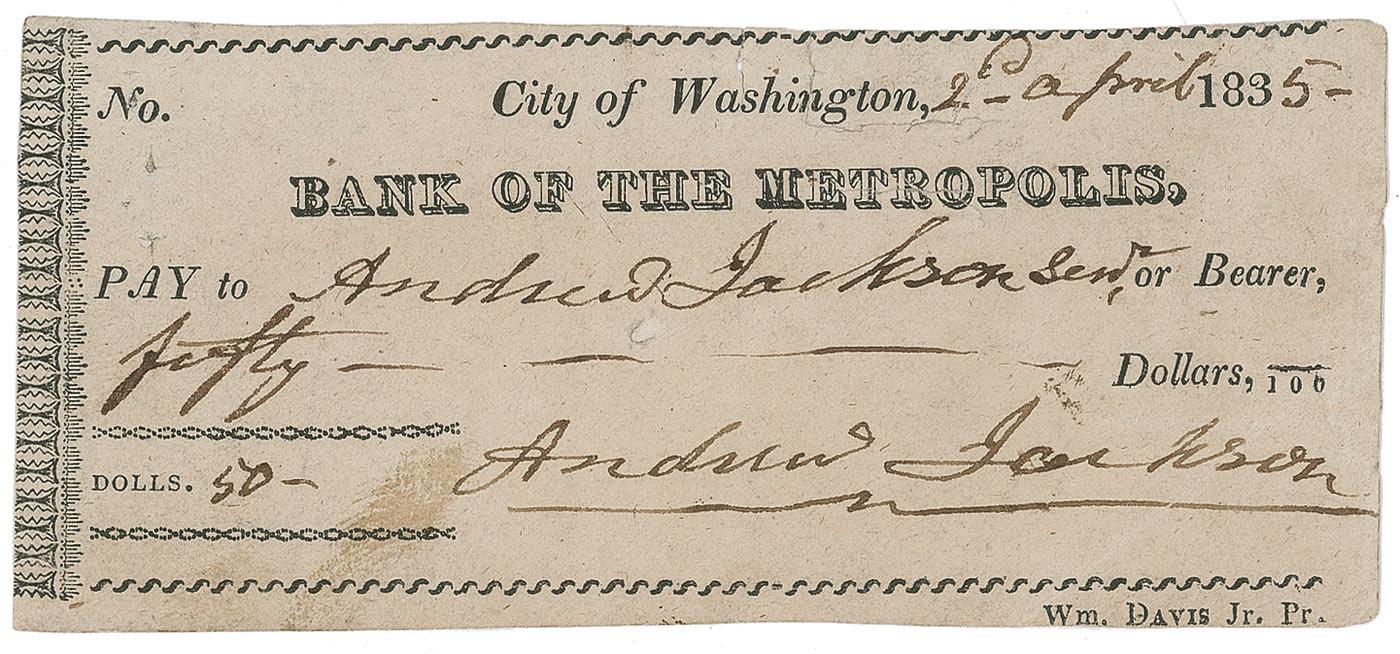 No. City of Washington, 2d April 1835-
BANK OF THE METROPOLIS,
PAY to Andrew Jackson Senr or Bearer,
fifty — — — — Dollars, 100
DOLLS. 50-
Andrew Jackson
Wm. DAVIS Jr. Pr.